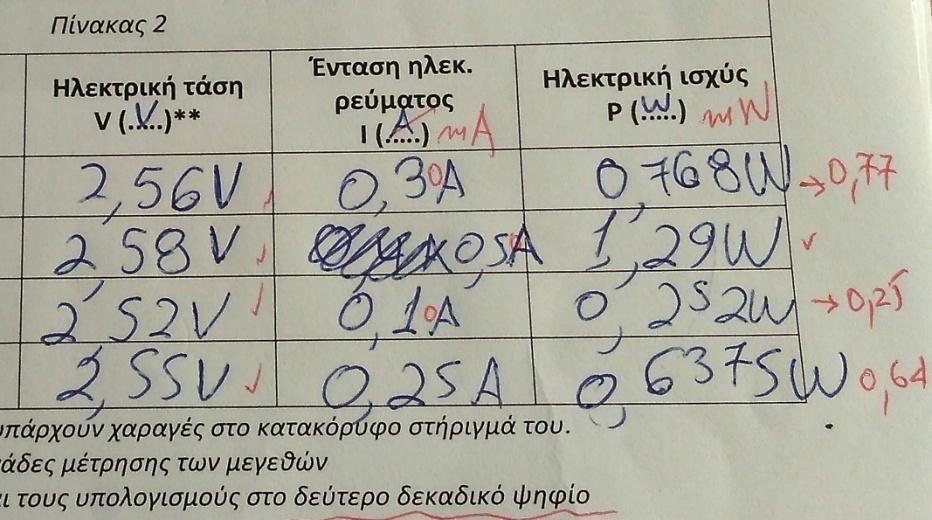 Πίνακας 2
Ηλεκτρική τάση V (.V..)** Ένταση ηλεκ. ρεύματος I (.A..) mA Ηλεκτρική ισχύς P (.W..) mW
2,56V 0,30A 0,768W → 0,77
2,58V 0,50A 1,29W
2,52V 0,10A 0,252W → 0,25
2,55V 0,25A 0,6375W 0,64
υπάρχουν χαραγές στο κατακόρυφο στήριγμά του.
άδες μέτρησης των μεγεθών
ι τους υπολογισμούς στο δεύτερο δεκαδικό ψηφίο